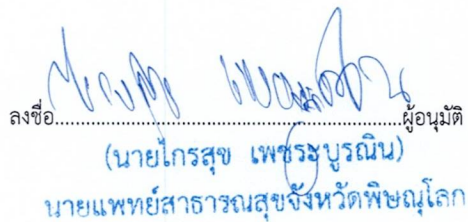 ลงชื่อ......................................................ผู้อนุมัติ
(นายไกรสุข เพชระบูรณิน)
นายแพทย์สาธารณสุขจังหวัดพิษณุโลก